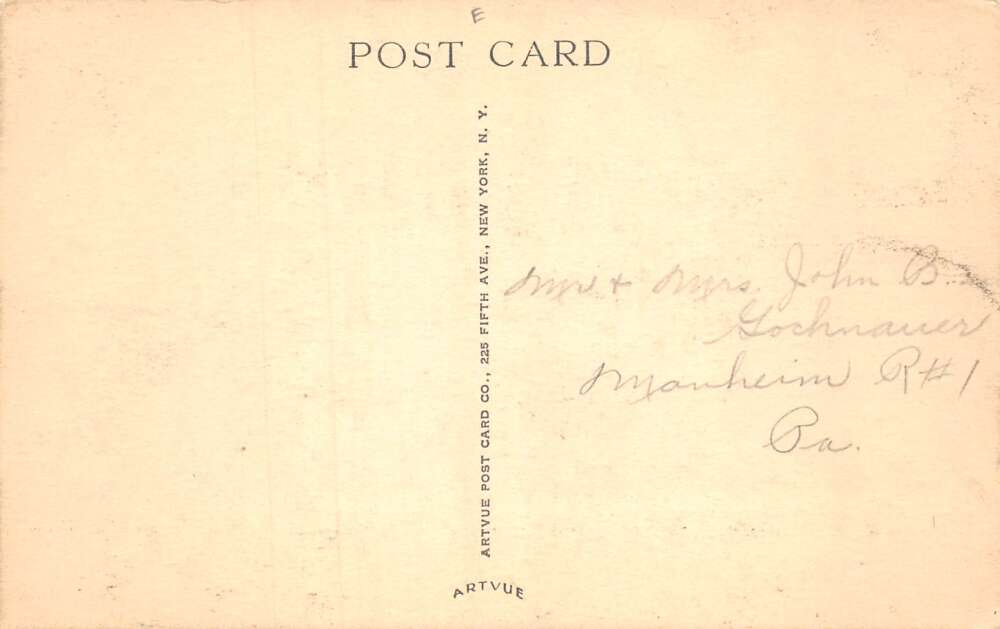 E
POST CARD
ARTVUE POST CARD CO., 225 FIFTH AVE., NEW YORK, N. Y.
Mr & Mrs. John B.
Gochnauer
Manheim R#1
Pa.
ARTVUE